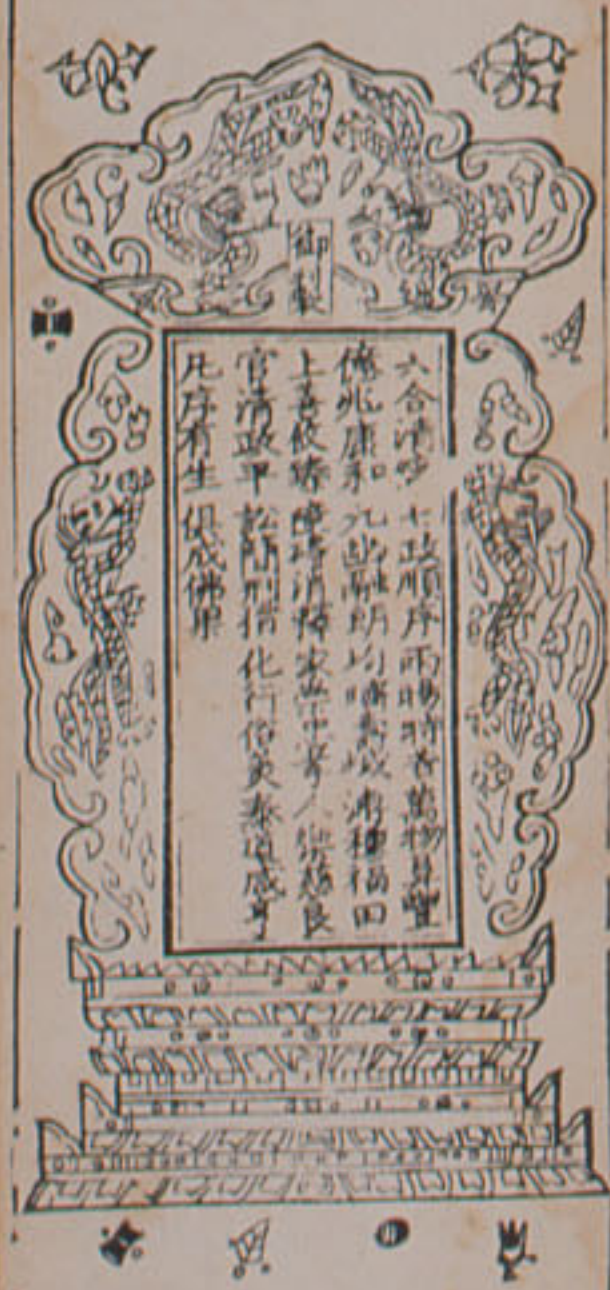 御製
六合清 七政順序雨暘時若萬物 豐
億兆康和 九幽融朗均躋壽域溥種福田
上善攸臻 障礙消釋家 忠孝人 慈良
官清政平 訟簡刑措化行俗美泰道咸亨
凡 有生 俱成佛果